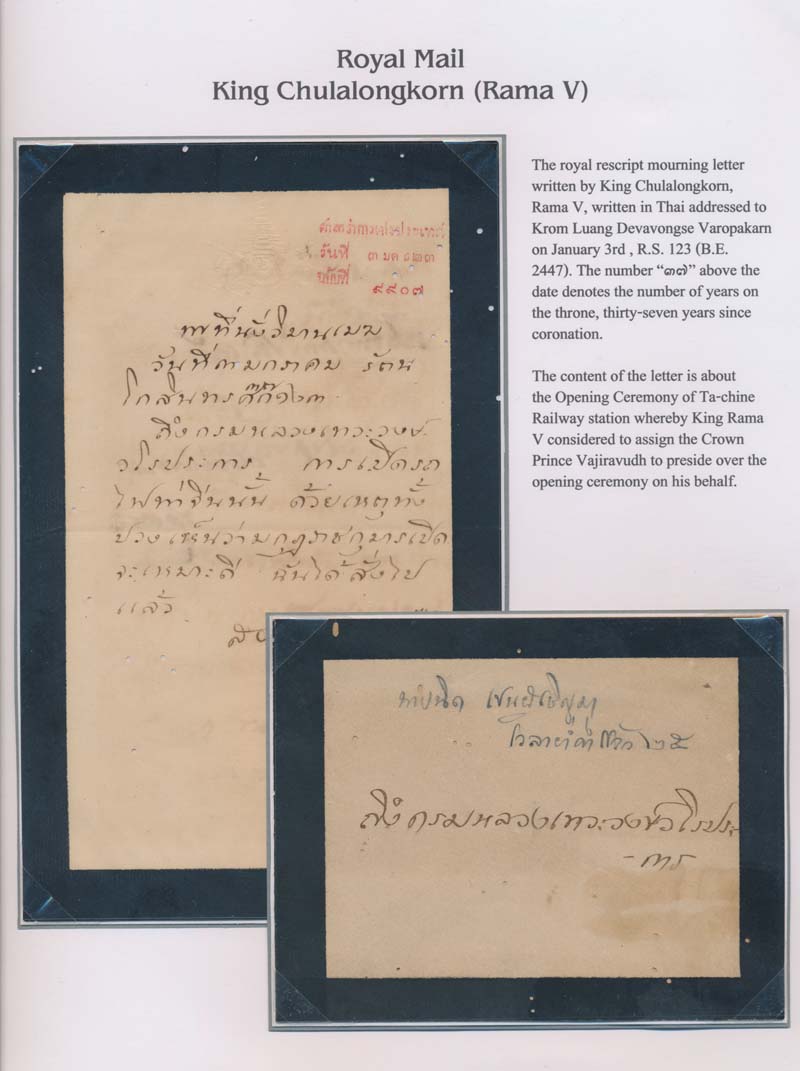 Royal Mail
King Chulalongkorn (Rama V)
The royal rescript mourning letter
written by King Chulalongkorn,
Rama V, written in Thai addressed to
Krom Luang Devavongse Varopakarn
on January 3rd , R.S. 123 (B.E.
2447). The number “๓๗” above the
date denotes the number of years on
the throne, thirty-seven years since
coronation.
The content of the letter is about
the Opening Ceremony of Ta-chine
Railway station whereby King Rama
V considered to assign the Crown
Prince Vajiravudh to preside over the
opening ceremony on his behalf.
ศาลาว่าการต่างประเทศ
วันที่ ๓ มค ๑๒๓
๙๙๐๗
พที่นั่งวิมานเมฆ
วันที่ ๓ มกราคม รัตน
โกสินทรศก๓๗ ๑๒๓
ถึง กรมหลวงเทวะวงษ
วโรประการ การเปิดรถ
ไฟท่าจีนนั้น ด้วยเหตุทั้ง
ปวงเห็นว่ามกุฎราชกุมารเปิด
จะเหมาะดี ฉันได้สั่งไป
แล้ว
เวลาย่ำค่ำแล้ว ๒๕
ถึง กรมหลวงเทวะวงษวโรประ
-การ